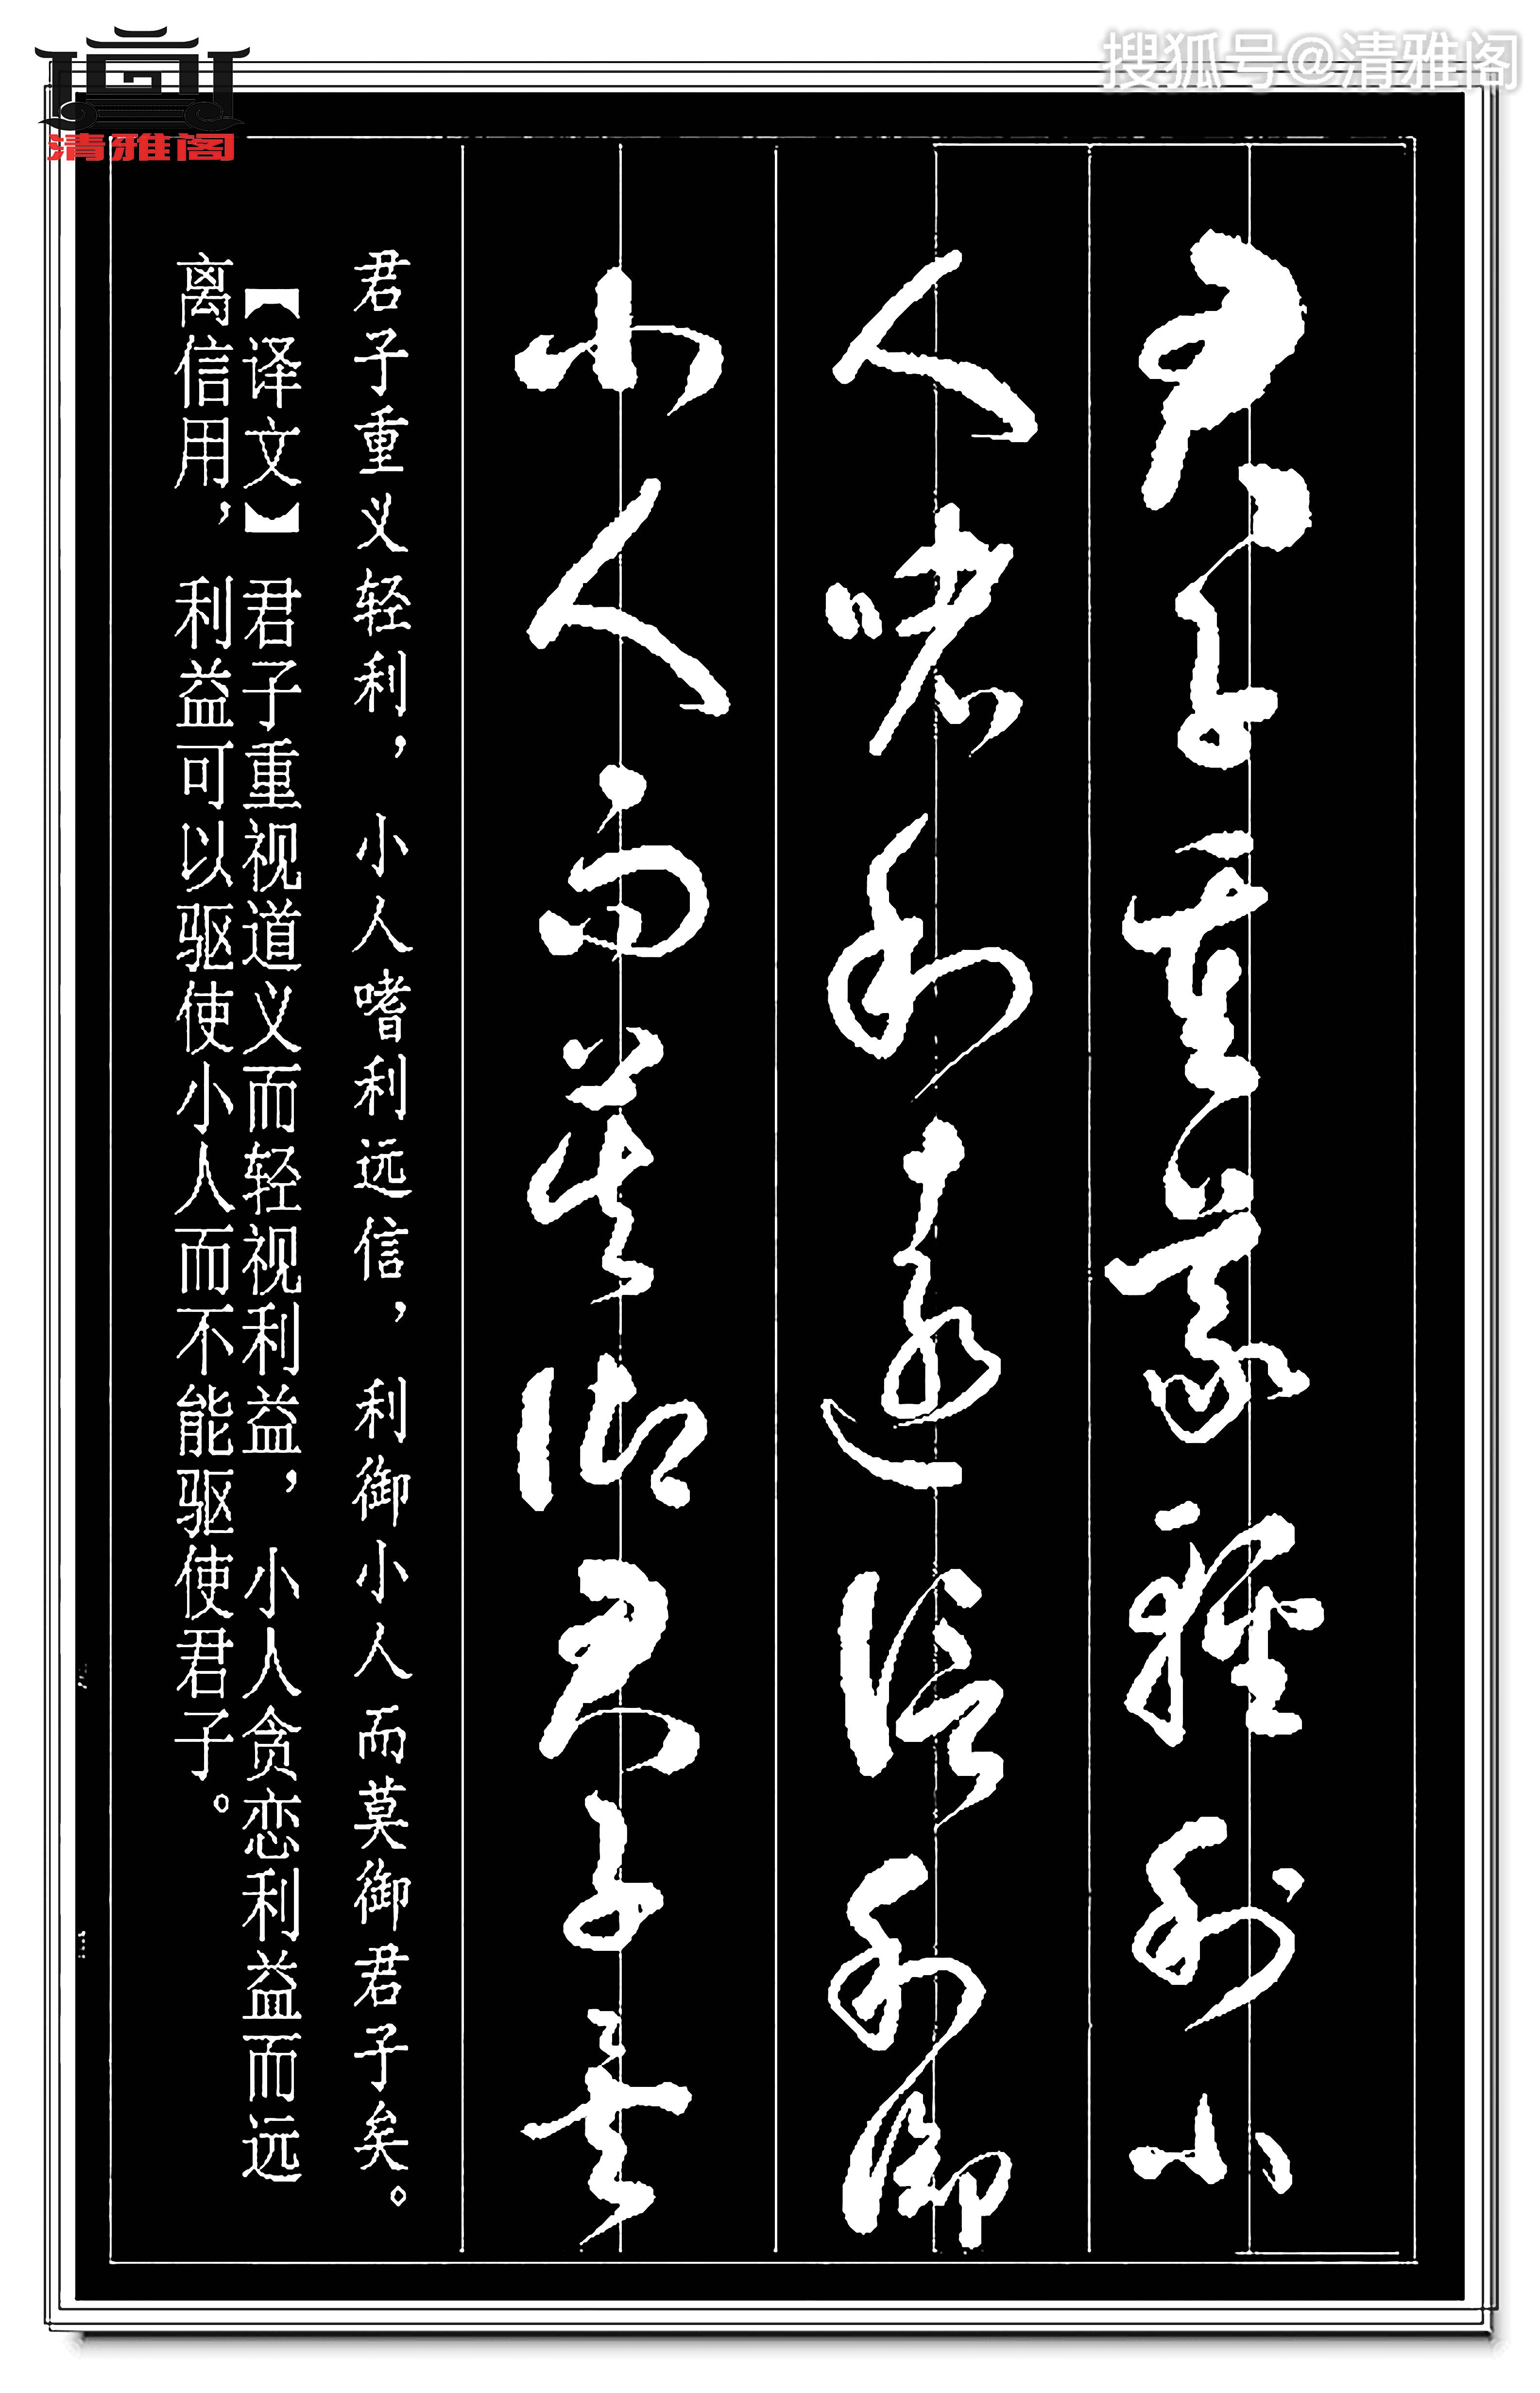 搜狐号@清雅阁
清雅阁
君子重義輕利小
人嗜利遠信利御
小人而莫御君子矣
君子重义轻利，小人嗜利远信，利御小人而莫御君子矣。
【译文】君子重视道义而轻视利益，小人贪恋利益而远
离信用，利益可以驱使小人而不能驱使君子。